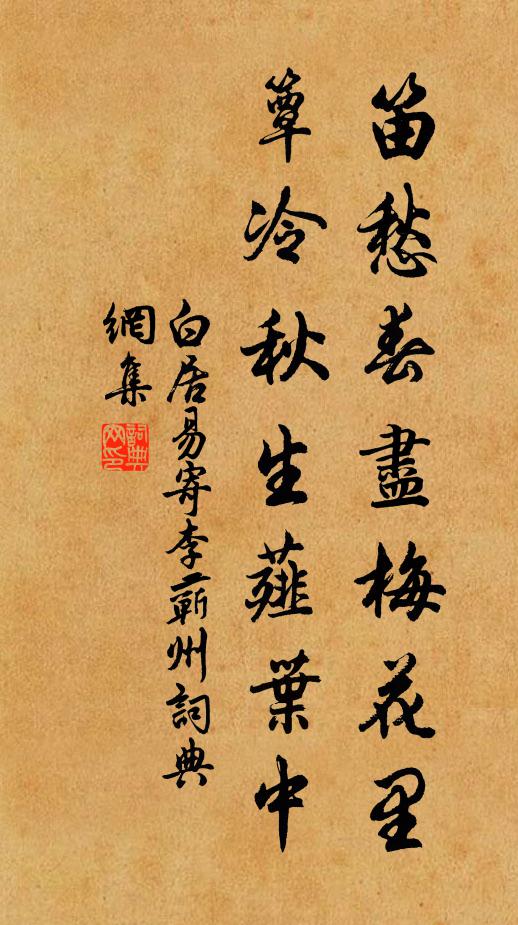 笛愁春盡梅花里
簟冷秋生薤葉中
白居易寄李蘄州詞典
網集
詞典
网印